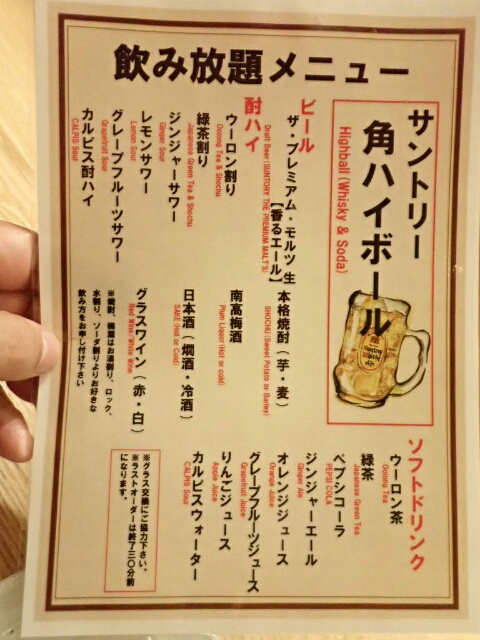 飲み放題メニュー
サントリー
角ハイボール
Highball (Whisky & Soda)
ビール
ザ・プレミアム・モルツ 生
【香るエール】
Draft Beer (SUNTORY THE PREMIUM MALT'S)
酎ハイ
ウーロン割り
Oolong Tea & Shochu
緑茶割り
Japanese Green Tea & Shochu
ジンジャーサワー
Ginger Sour
レモンサワー
Lemon Sour
グレープフルーツサワー
Grapefruit Sour
カルピス酎ハイ
CALPIS Sour
本格焼酎（芋・麦）
SHOCHU (Sweet Potato or Barley)
南高梅酒
Plum Liquor (Hot or cold)
日本酒（燗酒・冷酒）
SAKE (Hot or Cold)
グラスワイン（赤・白）
Red Wine/White Wine
※焼酎、梅酒はお湯割り、ロック、
水割り、ソーダ割りよりお好きな
飲み方をお申し付け下さい
ソフトドリンク
ウーロン茶
Oolong Tea
緑茶
Japanese Green Tea
ペプシコーラ
PEPSI COLA
ジンジャーエール
Ginger Ale
オレンジジュース
Orange Juice
グレープフルーツジュース
Grapefruit Juice
りんごジュース
Apple Juice
カルピスウォーター
CALPIS Sour
※グラス交換にご協力下さい。
※ラストオーダーは終了三〇分前
になります。